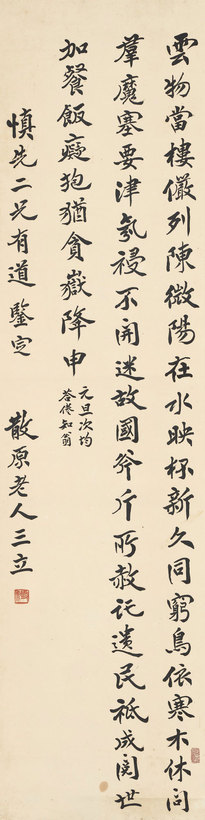 雲物當樓儼列陳微陽在水映杯新久同窮鳥依寒木休問
羣魔塞要津氛祲不開迷故國斧斤所赦託遺民祗成閱世
加餐飯癡抱猶貪嶽降申
元旦次均
答佚知翁
慎先二兄有道鑒定
散原老人三立